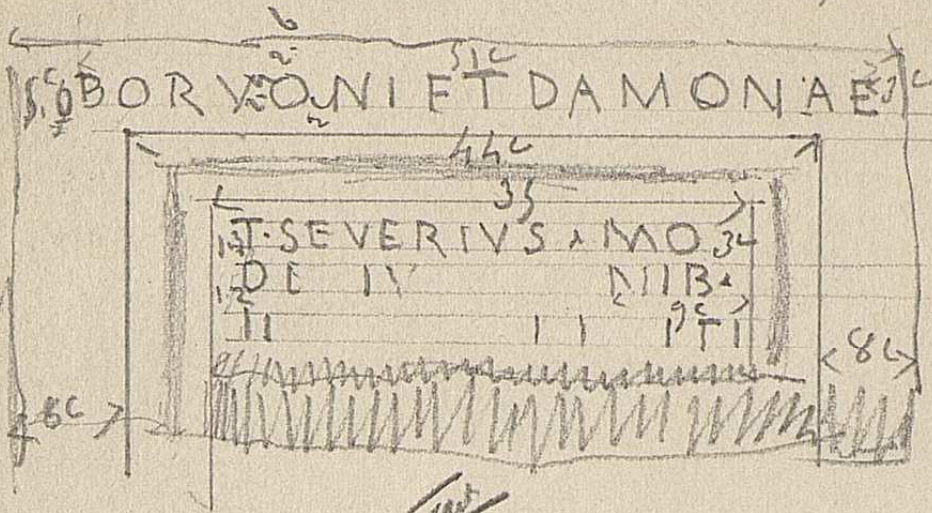 6
2
51c
BORVONI ET DAMONAE
44c
35
T·SEVERIVS · MO
DE IV NIB·
9c
II I I I T I
8c
8c